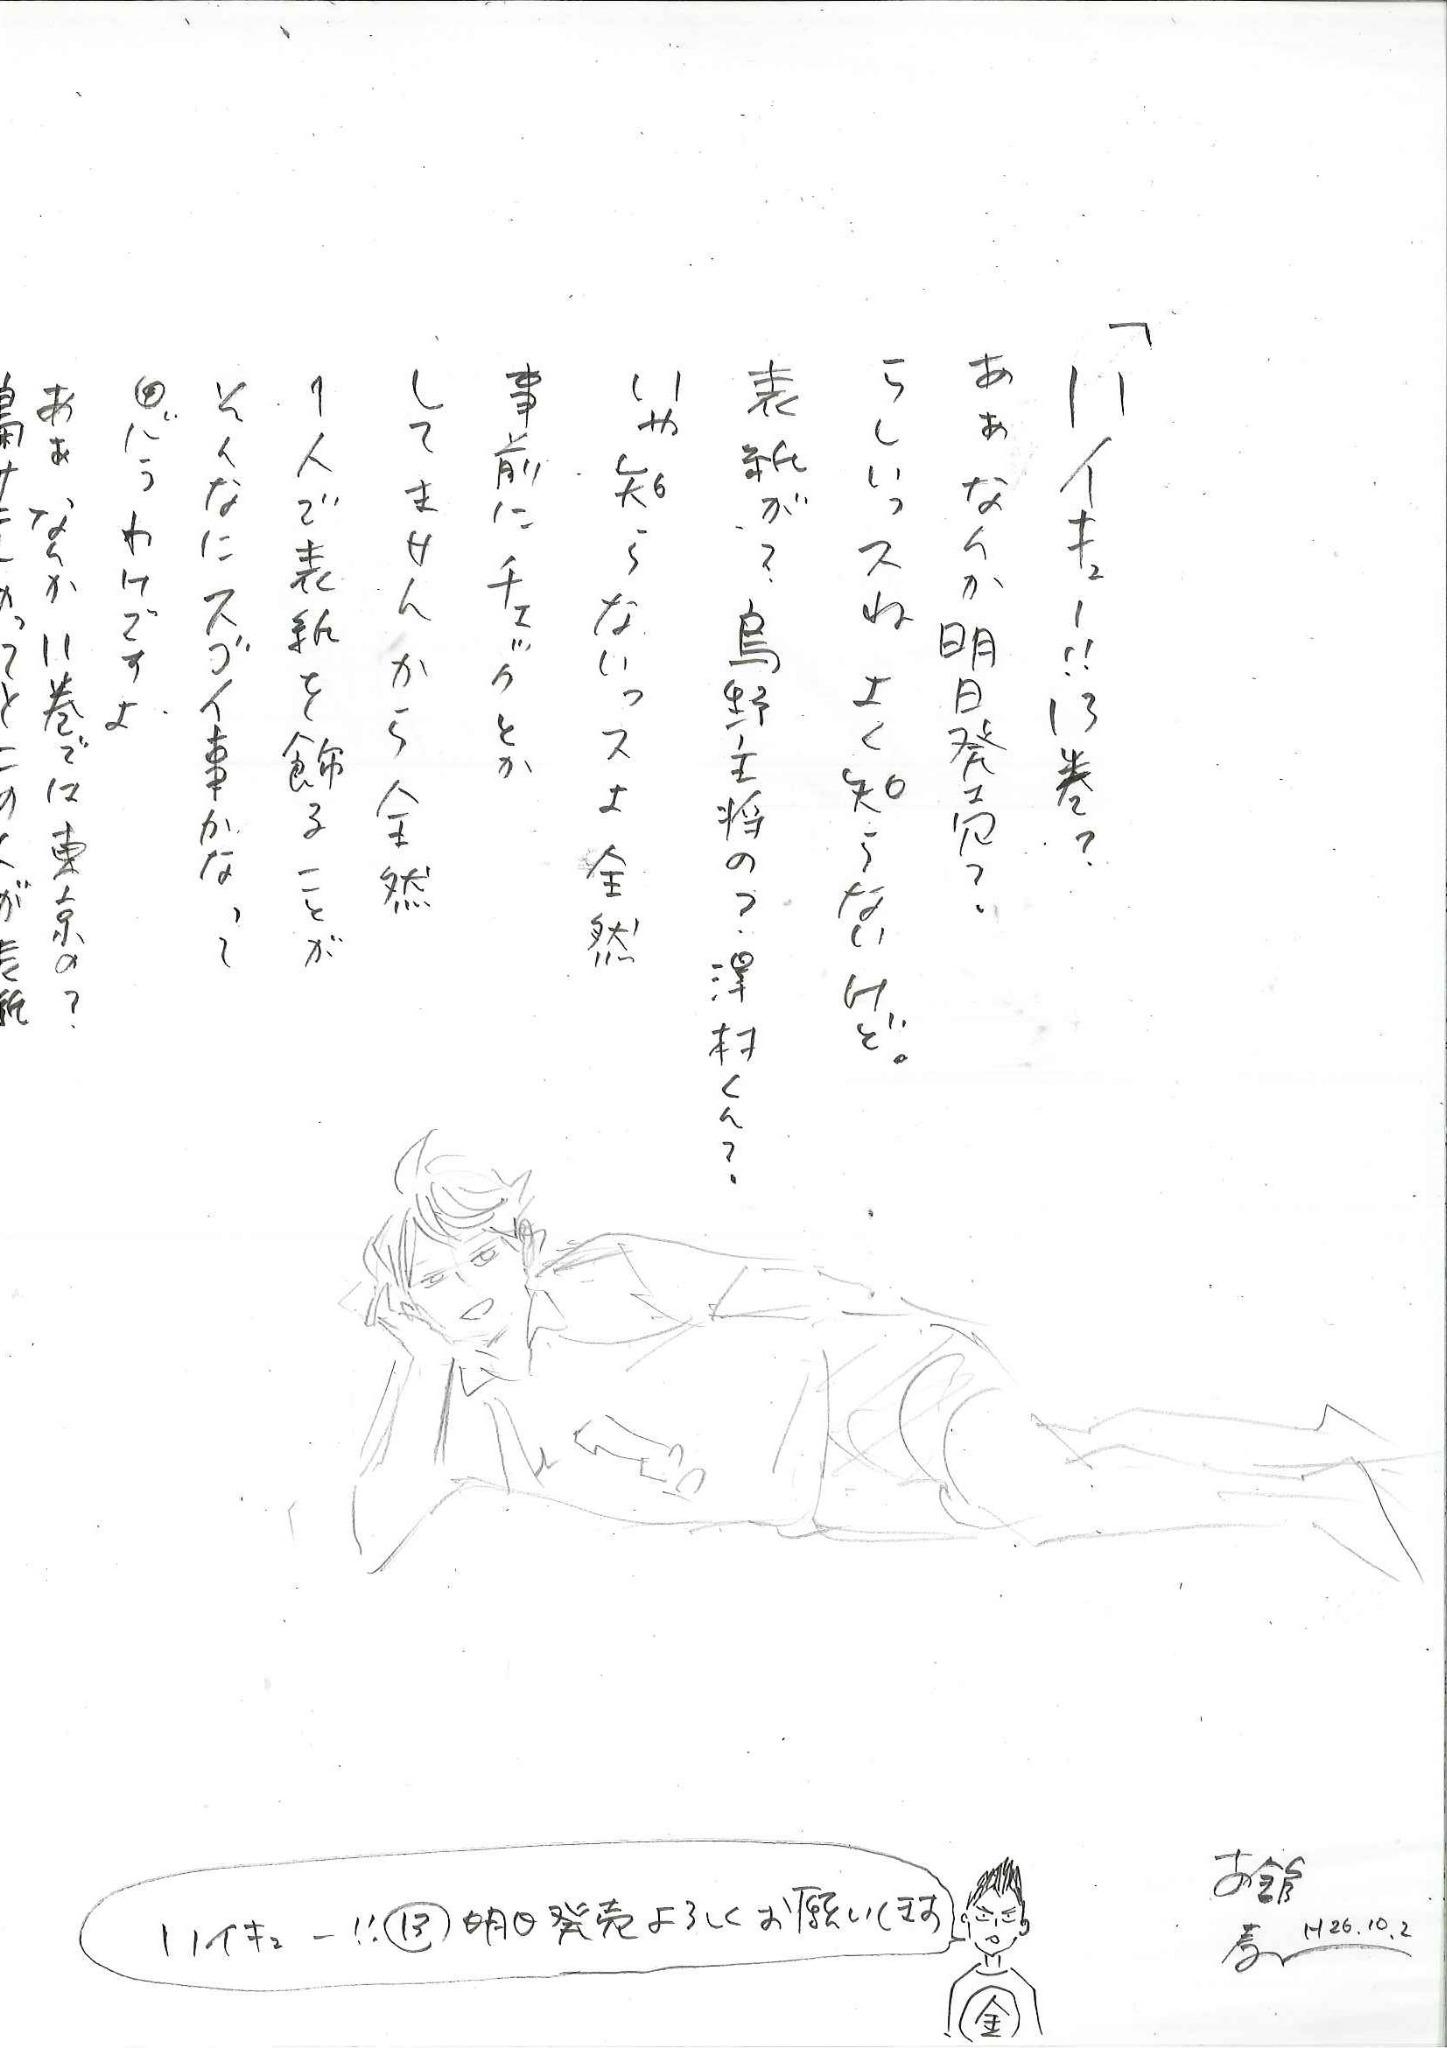 「ハイキュー!!13巻?
ああなんか明日発売?
らしいっスね よく知らないけど。
表紙が? 烏野主将の? 澤村くん?
いや知らないっスよ全然
事前にチェックとか
してませんから全然
1人で表紙を飾ることが
そんなにスゴイ事かなって
思うわけですよ
ああ なんか11巻では東京の?
ハイキュー!!⑬明日発売よろしくお願いします
金
古舘
春一
H26.10.2